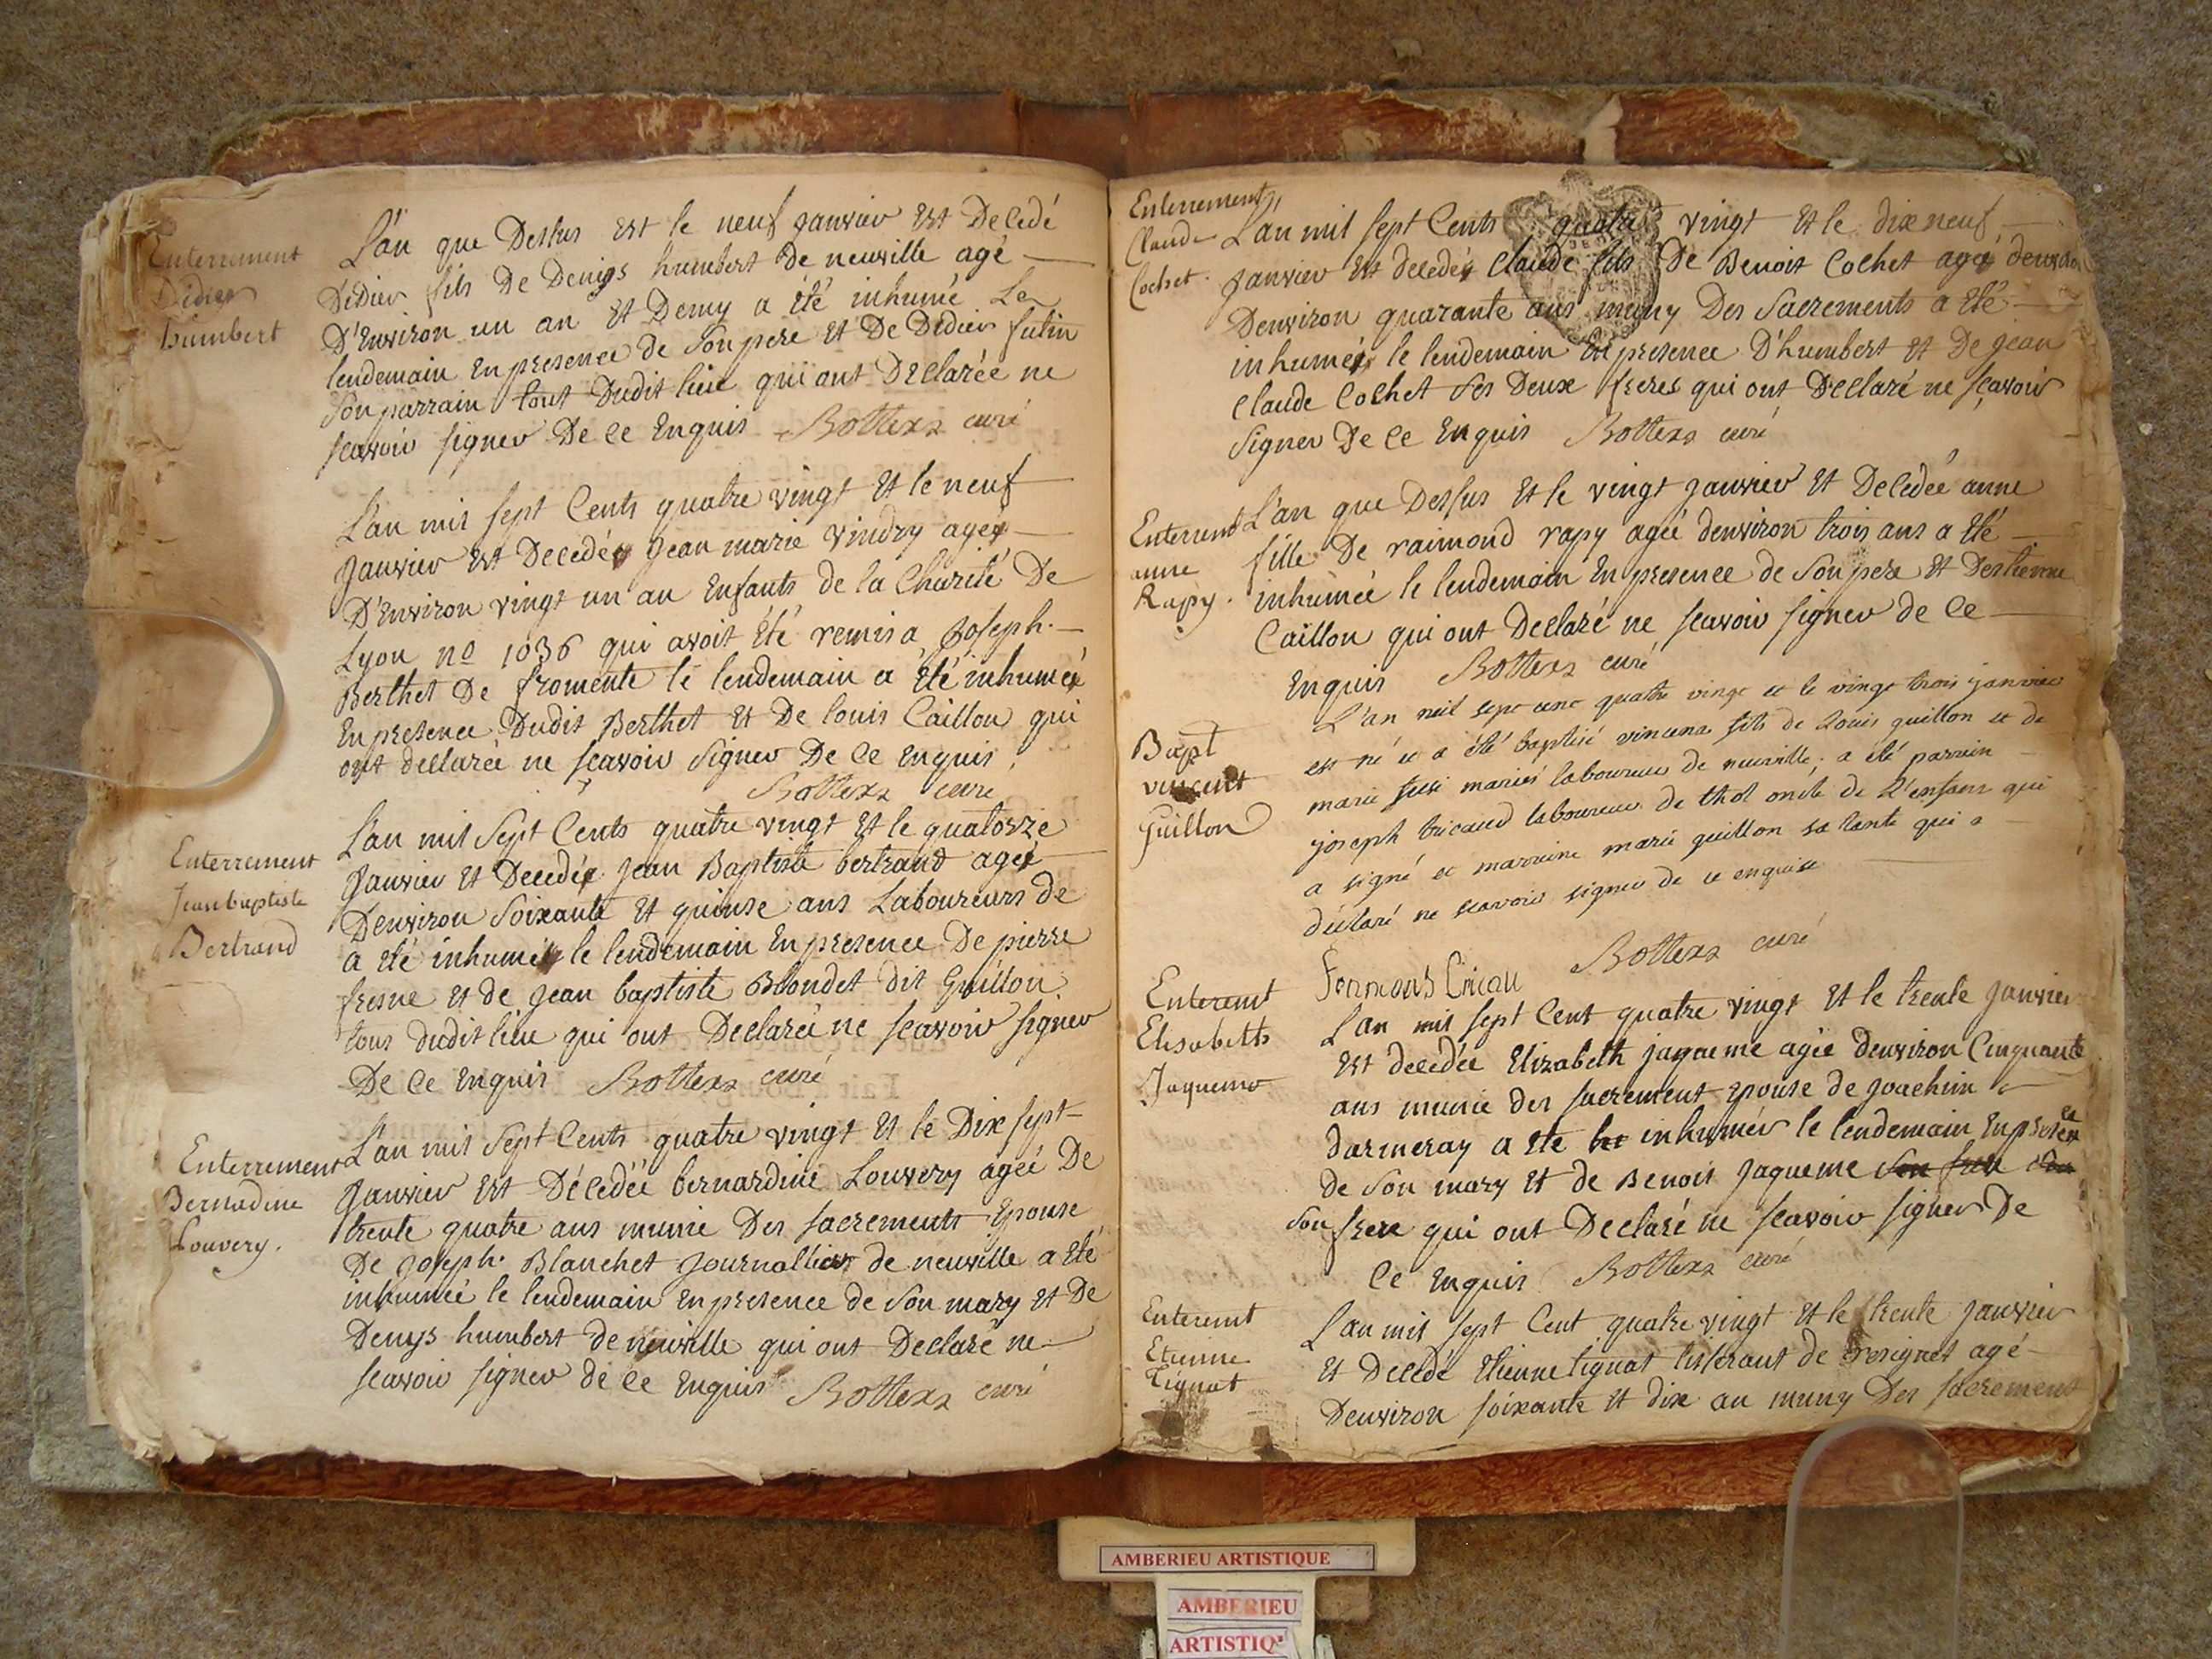 Enterrement
Didier
humbert
L'an que Dessus est le neuf janvier est Decedé
Didier fils De Denigs humbert de neuville agé
D'Environ un an et Demy a été inhumé Le
lendemain En presence de Son pere et De Didier
Son parrain tout Dudit lieu qui ont Declarée ne
scavoir signer De ce Enquis Bottex curé
L'an mil sept Cents quatre vingt et le neuf
janvier est Decedé jean marie vindry agé
D'Environ vingt un an Enfants de la Charité De
Lyon no 1036 qui avoit été remis a joseph
Berthet De fromente le lendemain a été inhumé
En presence Dudit Berthet et De louis Caillon qui
ont declarée ne scavoir signer De ce enquis
Bottex curé
Enterrement
Jean baptiste
Bertrand
L'an mil sept Cents quatre vingt et le quatorze
janvier et Decedé jean Baptiste bertrand agé
Denviron Soixante et quinse ans Laboureurs de
a été inhumé le lendemain En presence De pierre
fresne et de jean baptiste Blondet dit Guillon
tous dudit lieu qui ont Declarée ne scavoir signer
De ce enquis Bottex curé
Enterrement
Bernadine
Louvery.
L'an mil sept Cents quatre vingt et le Dix sept
janvier est Décedée bernardine Louvery ageé De
trente quatre ans munie Des sacrements Epouse
De joseph Blanchet journallier de neuville a été
inhumée le lendemain en presence de Son mary et De
Denys humbert de neuville qui ont Declaré ne
scavoir signer de ce enquis Bottex curé
Enterrement
Claude
Cochet.
L'an mil sept Cents quatre vingt et le dix neuf
janvier est decedé Claude fils De Benoit Cochet agé
Denviron quarante ans muny Des Sacrements a été
inhumé le lendemain en presence D'humbert et De jean
Claude Cochet ses Deux freres qui ont Declaré ne scavoir
Signer De ce Enquis Bottex curé
Enterremt
anne
Rapy.
L'an que Dessus et le vingt janvier et Decedée anne
fille De raimond rapy agée denviron trois ans a été
inhumée le lendemain en presence de Son pere et Destienne
Caillon qui ont Declaré ne scavoir signer de ce
enquis Bottex curé
Bapt
vincent
Guillon
L'an mil sept cent quatre vingt et le vingt trois janvier
est né et a été baptisé vincent fils de Louis guillon et de
marie mariés laboureur de neuville; a été parrain
joseph bricaud laboureur de thol oncle de L'enfant qui
a signé et marraine marie guillon sa tante qui a
déclaré ne scavoir signer de ce enquise
Bottex curé
Enteremt
Elisabeth
Jaqueme
L'an mil sept Cent quatre vingt et le trente janvier
est decedée Elizabeth jaqueme agée denviron Cinquante
ans munie des sacrement epouse de joachim
darmeray a ete inhumée le lendemain En presence
de Son mary et de Benoit jaqueme son frere
son frere qui ont Declaré ne scavoir signer De
ce enquis Bottex curé
Enteremt
Etienne
Tignat
L'an mil sept Cent quatre vingt et le trente janvier
et Decedé Etienne tignat tisserant de agé
Denviron soixante et dix an muny Des sacrement
AMBERIEU ARTISTIQUE
AMBERIEU
ARTISTIQ